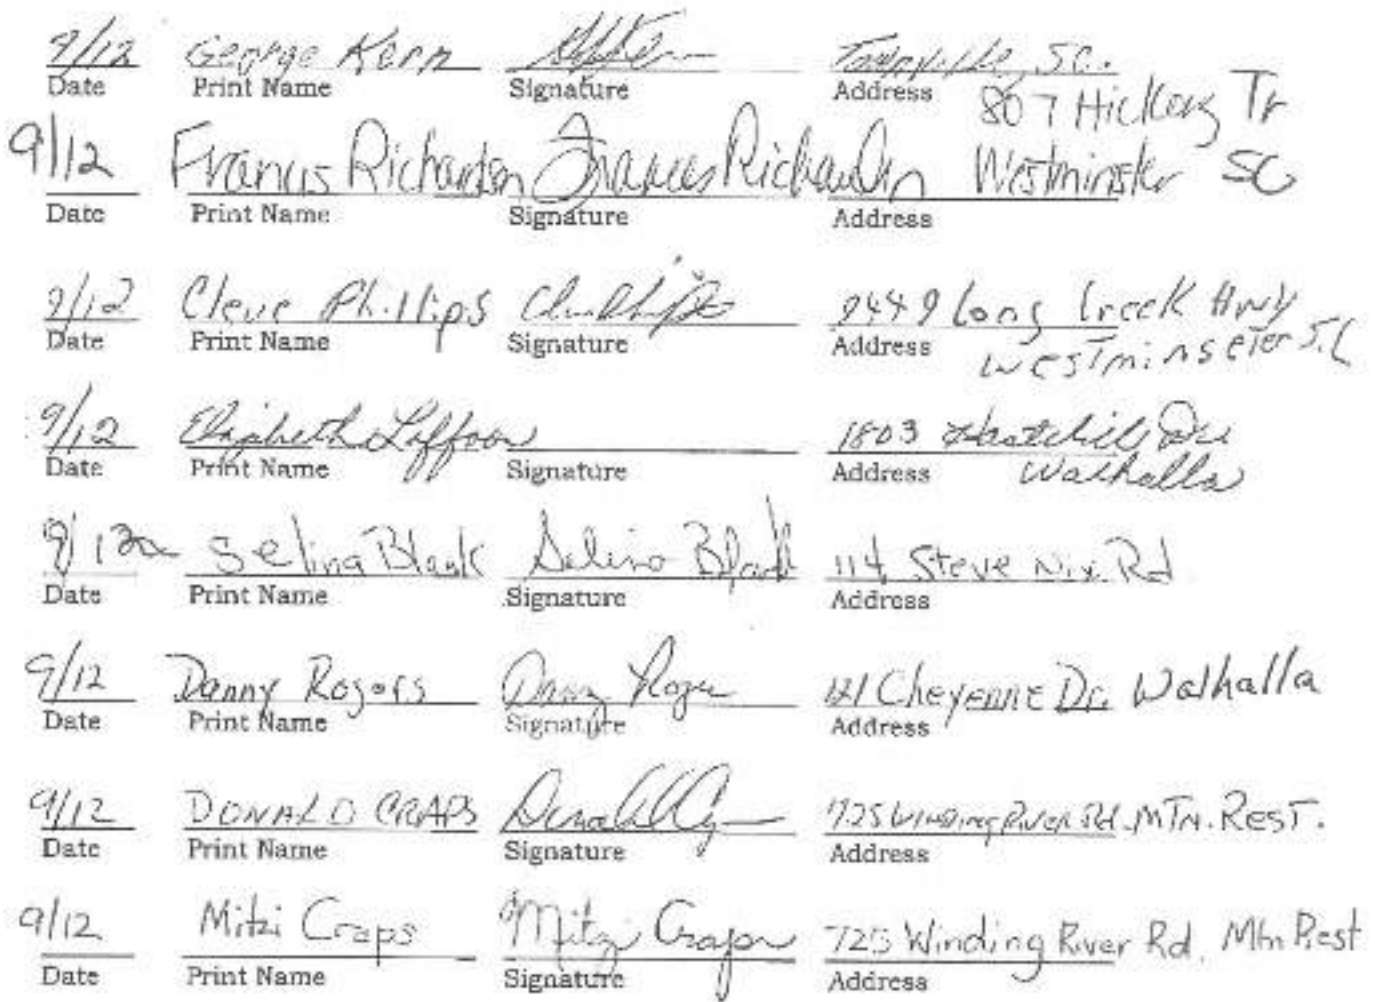 9/12 George Kern Townville, SC.
Date Print Name Signature Address
807 Hickory Tr
9/12 Francis Richardson Frances Richardson Westminster SC
Date Print Name Signature Address
9/12 Cleve Phillips 9449 Long Creek Hwy
Date Print Name Signature Address
Westminseter S.C
9/12 Elizabeth Laffoon 1803 Dr
Date Print Name Signature Address
Walhalla
9/12 Selina Black Selina Black 114 Steve Nix Rd
Date Print Name Signature Address
9/12 Danny Rogers Danny Roger 121 Cheyenne Dr. Walhalla
Date Print Name Signature Address
9/12 DONALD CRAPS Donald 725 Winding River Rd. MTN. REST.
Date Print Name Signature Address
9/12 Mitzi Craps Mitzi Craps 725 Winding River Rd. Mtn Rest
Date Print Name Signature Address